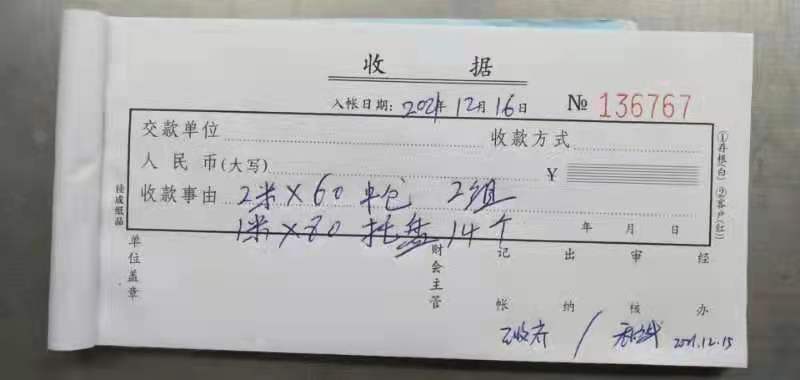 收 据
入帐日期: 2021年12月16日 № 136767
交款单位 收款方式
人民币(大写) ¥
收款事由 2米×60 2组
1米×80 托盘 14个
年 月 日
①存根(白) ②客户(红)
佳成纸品
单位盖章
财会主管
记帐
出纳
审核
经办
已收齐 / 2021.12.15